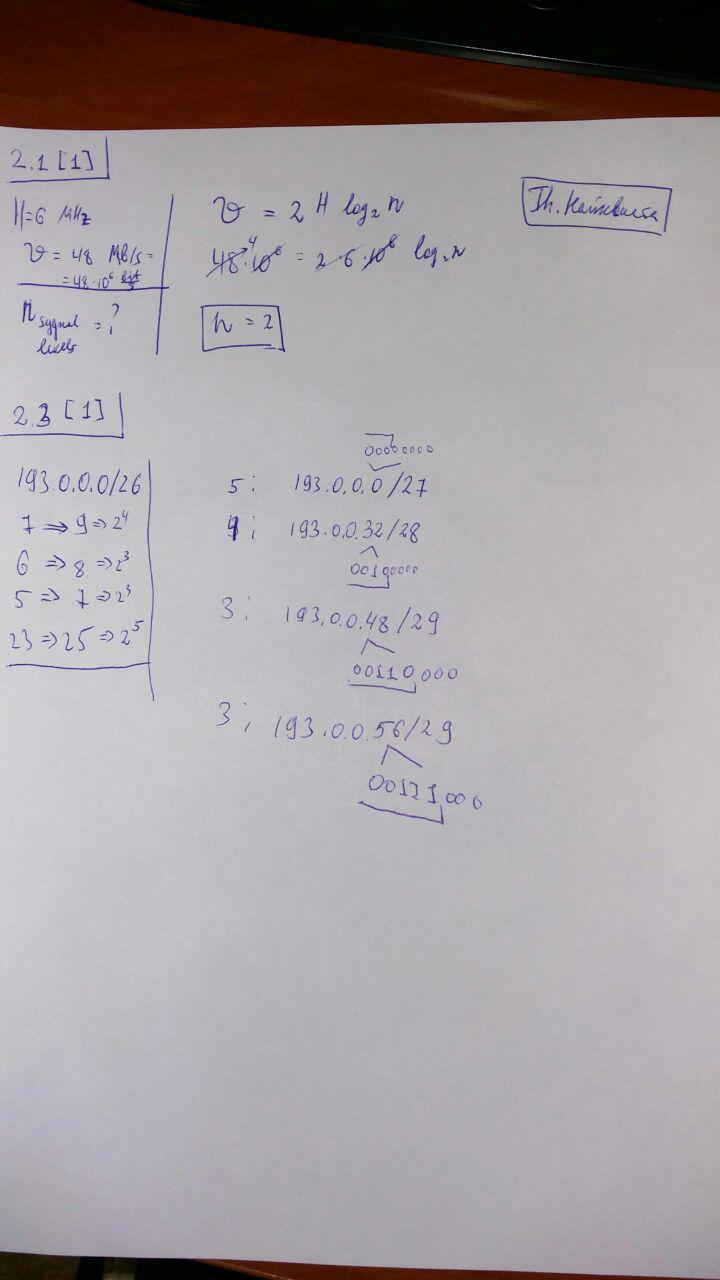 2.1 [1]
H=6 MHz
v = 48 Mb/s =
= 48·10⁶ bit/s
n sygnal levels = ?
v = 2 H log₂ n
48·10⁶ = 2·6·10⁶ log₂ n
4
n = 2
Th.
2.3 [1]
193.0.0.0/26
7 => 9 => 2⁴
6 => 8 => 2³
5 => 7 => 2³
23 => 25 => 2⁵
00000000
5: 193.0.0.0/27
4; 193.0.0.32/28
00100000
3: 193.0.0.48/29
00110,000
3; 193.0.0.56/29
00111,000